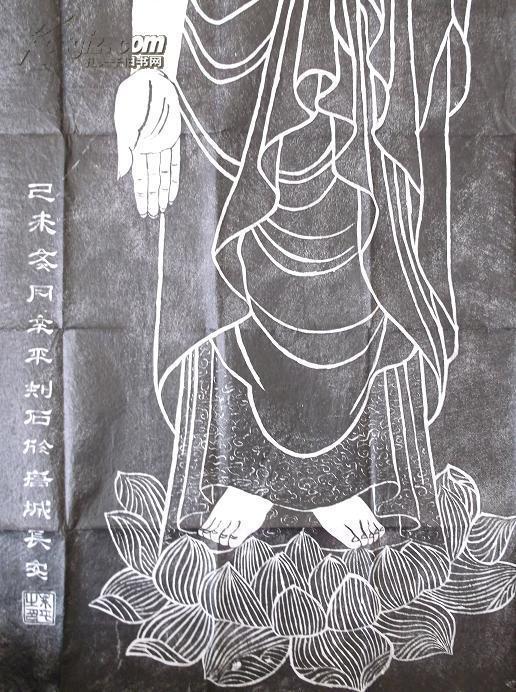 Kongfz.com
孔夫子旧书网
己未冬月宋平刻石於唐城長安